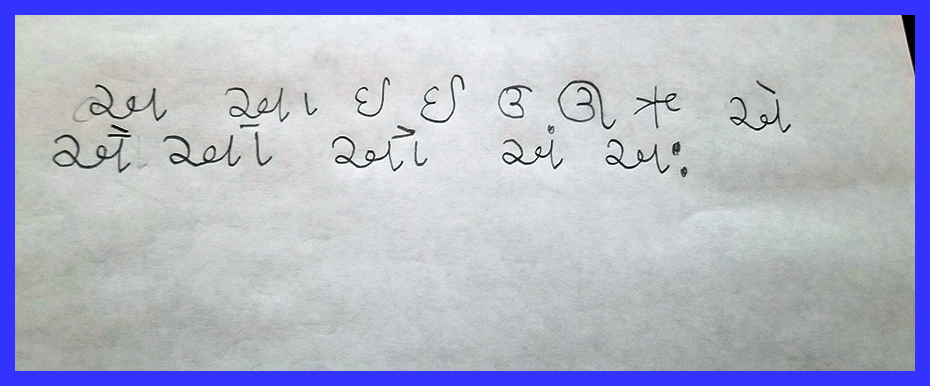 અ આ ઇ ઈ ઉ ઊ ઋ એ
ઐ ઓ ઔ અં અઃ